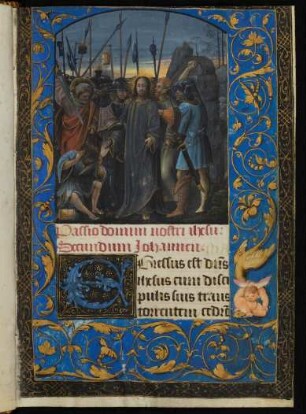 Passio domini nostri ihesu:
Secundum Johannem
Egressus est dns
ihesus cum disci
pulis suis trans
torrentem cedron